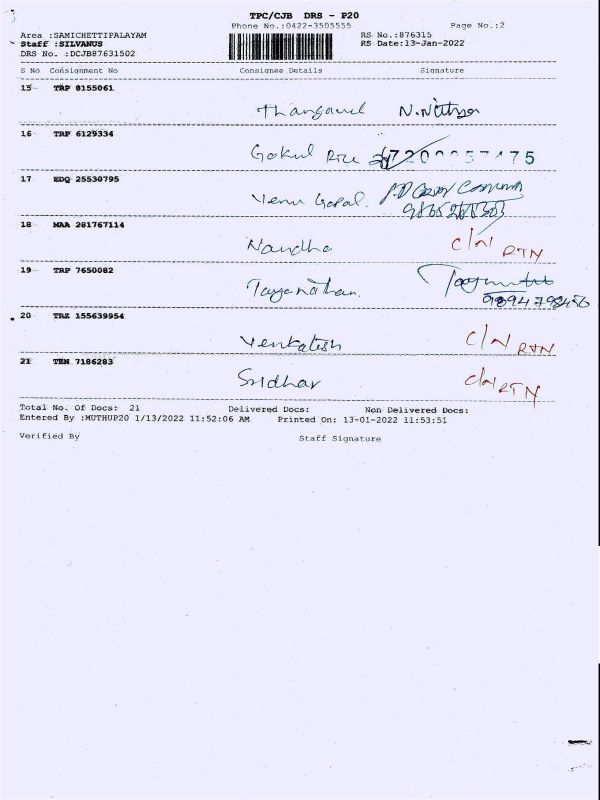 TPC/CJB DRS - P20
Phone No.:0422-3505555 Page No.:2
Area :SAMICHETTIPALAYAM RS No.:876315
Staff :SILVANUS RS Date:13-Jan-2022
DRS No. :DCJB87631502
S No Consignment No Consignee Details Signature
15 TRP 8155061
Thangavel N.Nithya
16 TRP 6129334
Gokul Rice
17 EDQ 25530795
Venu Gopal.
18 MAA 281767114
Nandha C/N RTN
19 TRP 7650082
Tayanathan.
20 TRZ 155639954
Venkatesh C/N RTN
21 TEN 7186283
Sridhar C/N RTN
Total No. Of Docs: 21 Delivered Docs: Non Delivered Docs:
Entered By :MUTHUP20 1/13/2022 11:52:06 AM Printed On: 13-01-2022 11:53:51
Verified By Staff Signature